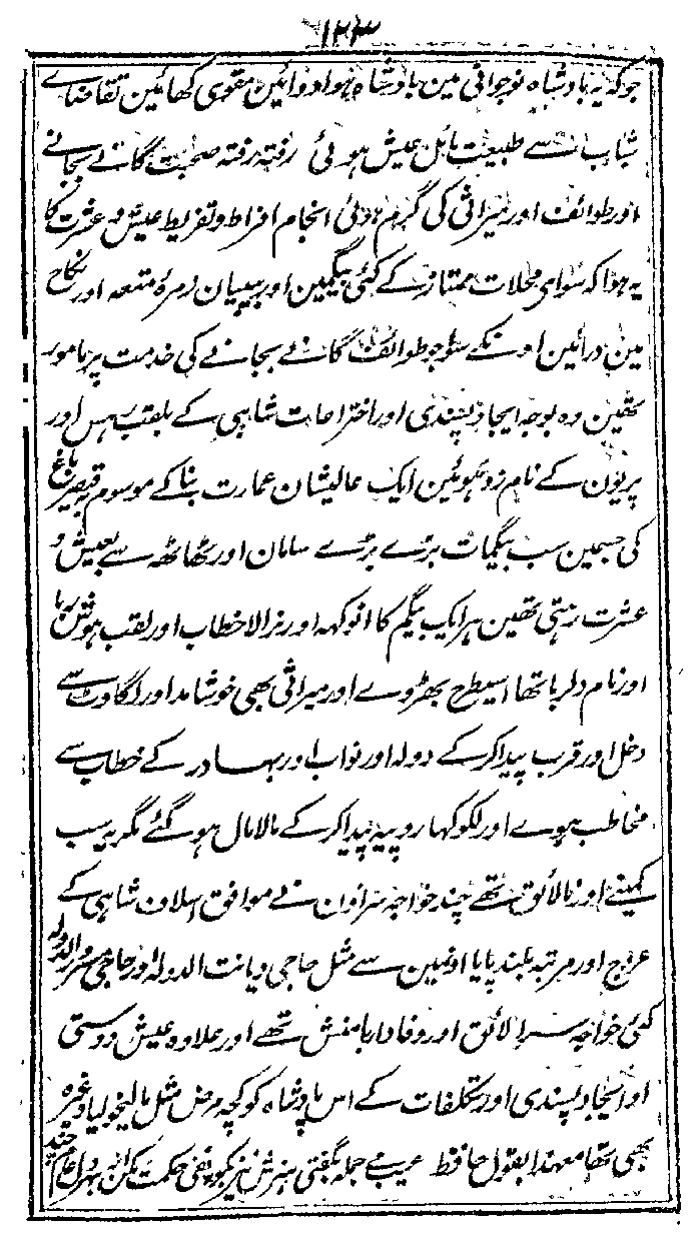 ۱۲۳
جو کہ یہ بادشاہ نوجوانی مین بادشاہ ہوا دوائین مقوی کھائین تقاضاے
شباب سے طبیعت مائل عیش ہوئی رفتہ رفتہ صحبت گانے بجانے
اور طوائف اور میراثی کی گرم ہوئی انجام افراط وتفریط عیش و عشرت کا
یہ ہوا کہ سوای محلات ممتاز کے کئی بیگمین اور بیبیان زمرۂ متعہ اور نکاح
مین درائین اونکے سوا جو طوائف گانے بجانے کی خدمت پر مامور
تھین وہ بوجہ ایجاد پسندی اور اختراعات شاہی کے بلقب رہس اور
پریون کے نام زد ہوئین ایک عالیشان عمارت بنا کے موسوم قیصر باغ
کی جسمین سب بیگمات بڑے بڑے سامان اور ٹھاٹھ سے بعیش و
عشرت رہتی تھین ہر ایک بیگم کا انوکہہ اور نرالا خطاب اور لقب ہوش ربا
اور نام دلربا تھا اسیطرح بھڑوے اور میراثی بھی خوشامد اور لگاوٹ سے
دخل اور قرب پیدا کر کے دولہ اور نواب اور بہادر کے خطاب سے
مخاطب ہوے اور لکوکہا روپیہ پیدا کر کے مالامال ہو گئے مگر یہ سب
کمینے اور نالائق تھے چند خواجہ سراون نے موافق اسلاف شاہی کے
عروج اور مرتبہ بلند پایا اونمین سے مثل حاجی دیانت الدولہ اور حاجی الدولہ
کئی خواجہ سرا لائق اور وفادار بامنش تھے اور علاوہ عیش دوستی
اور ایجاد پسندی اور تکلفات کے اس بادشاہ کو کچہ مرض مثل مالیخولیا وغیرہ
بھی تھا معہذا بقول حافظ عیب مے جملہ بگفتی ہنرش نیز بگو نفی حکمت مکن از بہر دل عام چند